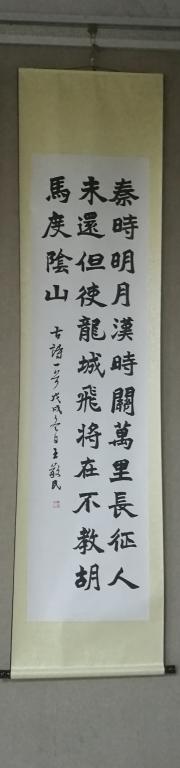 秦時明月漢時關萬里長征人
未還但使龍城飛将在不教胡
馬度陰山
古詩一首戊戌冬月王敬民